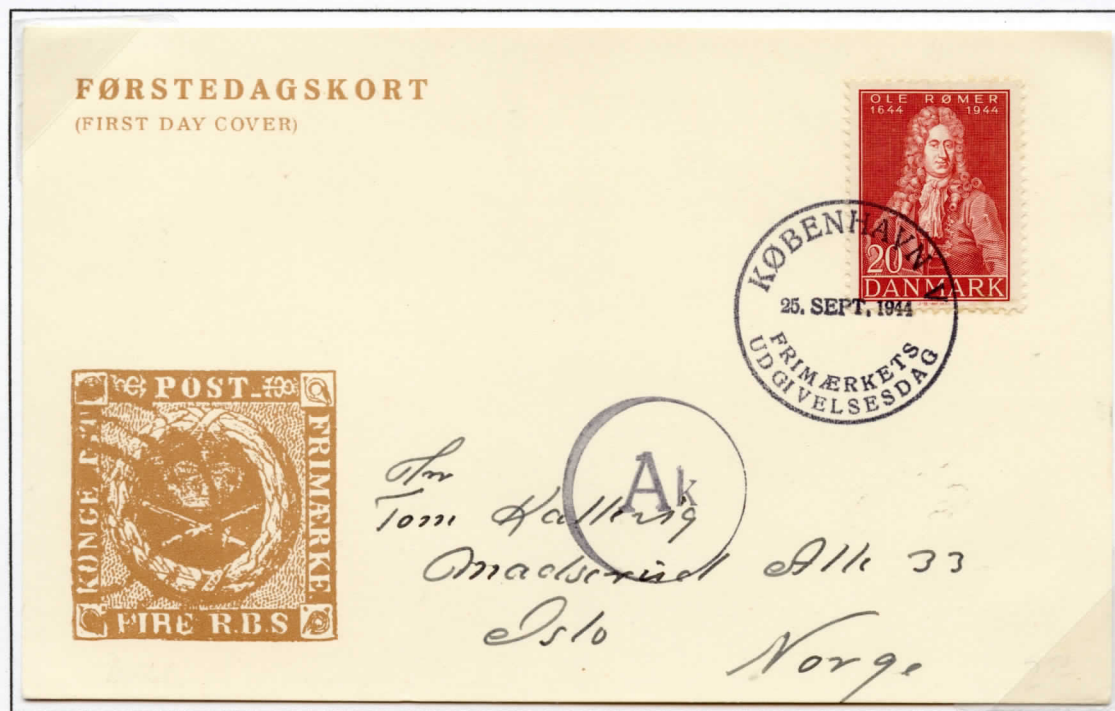 FØRSTEDAGSKORT
(FIRST DAY COVER)
OLE RØMER
1644 1944
20
DANMARK
KØBENHAVN V
25. SEPT. 1944
FRIMÆRKETS
UDGIVELSESDAG
POST
FRIMÆRKE
KONGELIGT
FIRE R.B.S
Ak
Hr
Tom Kallevig
Madserud Alle 33
Oslo
Norge